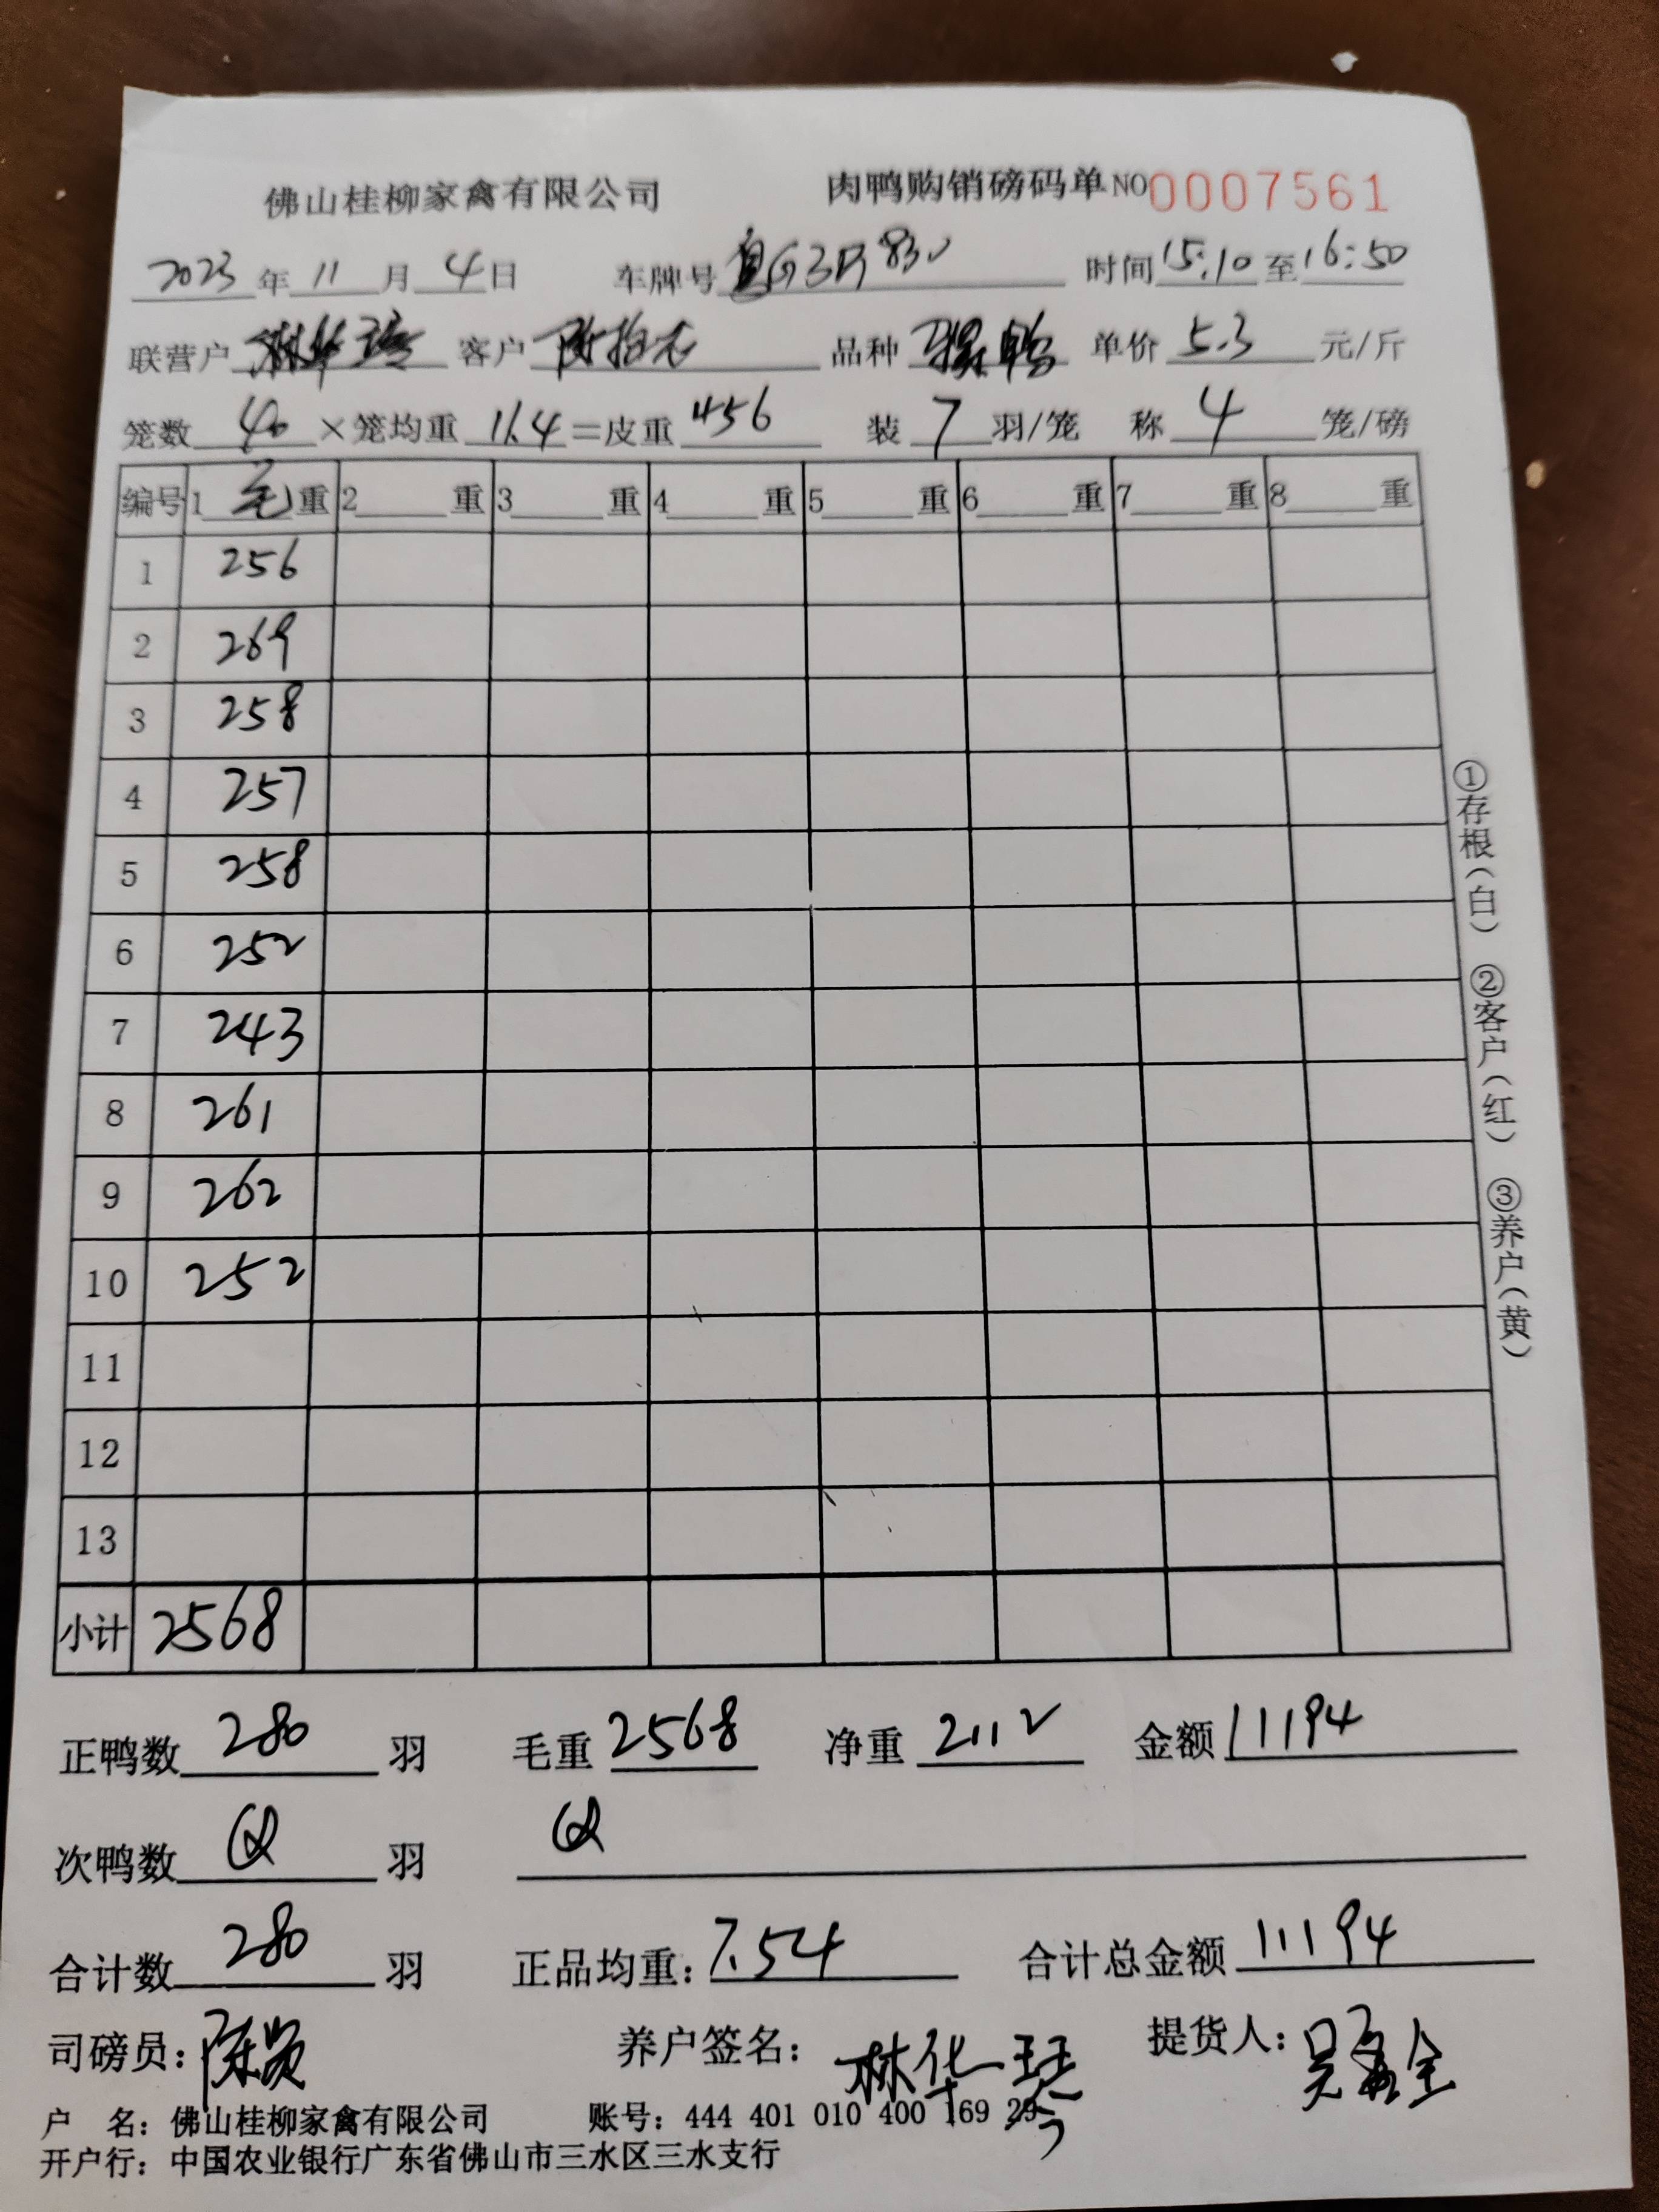 佛山桂柳家禽有限公司 肉鸭购销磅码单 NO 0007561
2023 年 11 月 4 日 车牌号 时间 15:10 至 16:50
联营户 林华琴 客户 品种 单价 5.3 元/斤
笼数 40 ×笼均重 11.4 =皮重 456 装 7 羽/笼 称 4 笼/磅
编号 1 毛 重 2 重 3 重 4 重 5 重 6 重 7 重 8 重
1 256
2 269
3 258
4 257
5 258
6 252
7 243
8 261
9 262
10 252
11
12
13
小计 2568
①存根(白) ②客户(红) ③养户(黄)
正鸭数 280 羽 毛重 2568 净重 2112 金额 11194
次鸭数 羽
合计数 280 羽 正品均重: 7.54 合计总金额 11194
司磅员: 养户签名: 林华琴 提货人:
户 名: 佛山桂柳家禽有限公司 账号: 444 401 010 400 169 29
开户行: 中国农业银行广东省佛山市三水区三水支行